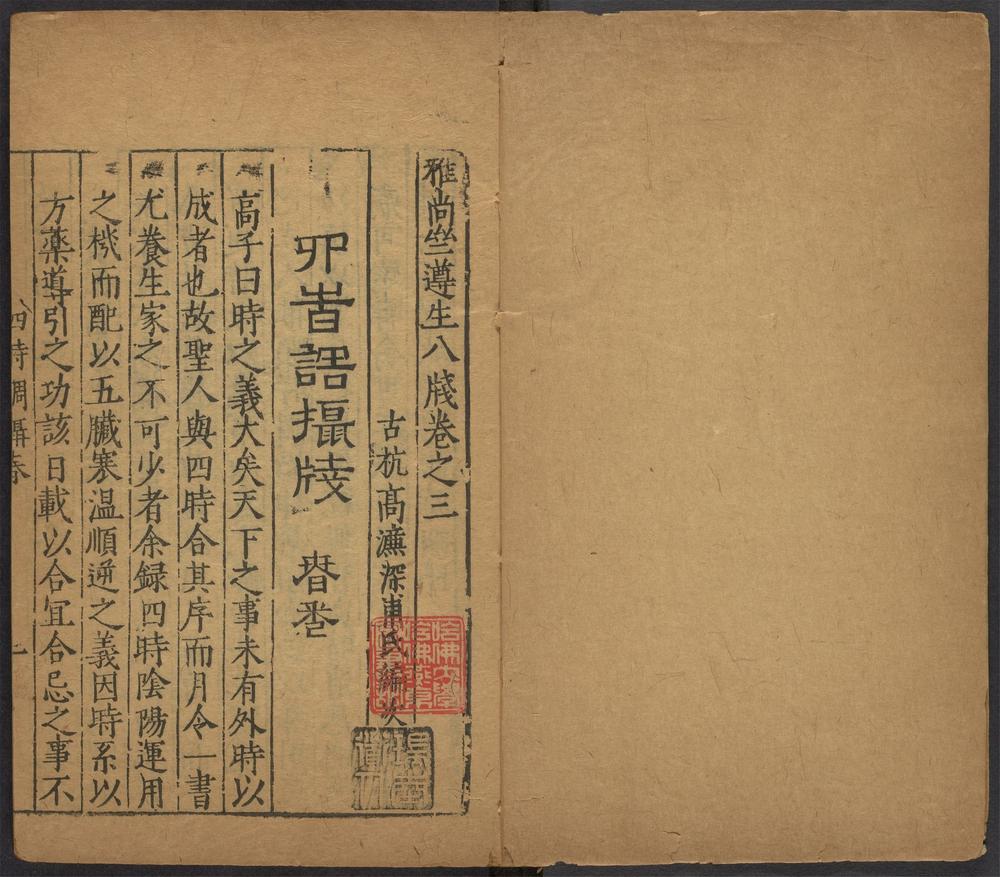 雅尚䇞遵生八牋卷之三
古杭高濂深甫氏編次
四時調攝牋 春卷
高子曰時之義大矣天下之事未有外時以
成者也故聖人與四時合其序而月令一書
尤養生家之不可少者余録四時陰陽運用
之機而配以五臟寒温順逆之義因時系以
方藥導引之功該日載以合宜合忌之事不
四時調攝春 一
哈佛大學
哈佛燕京